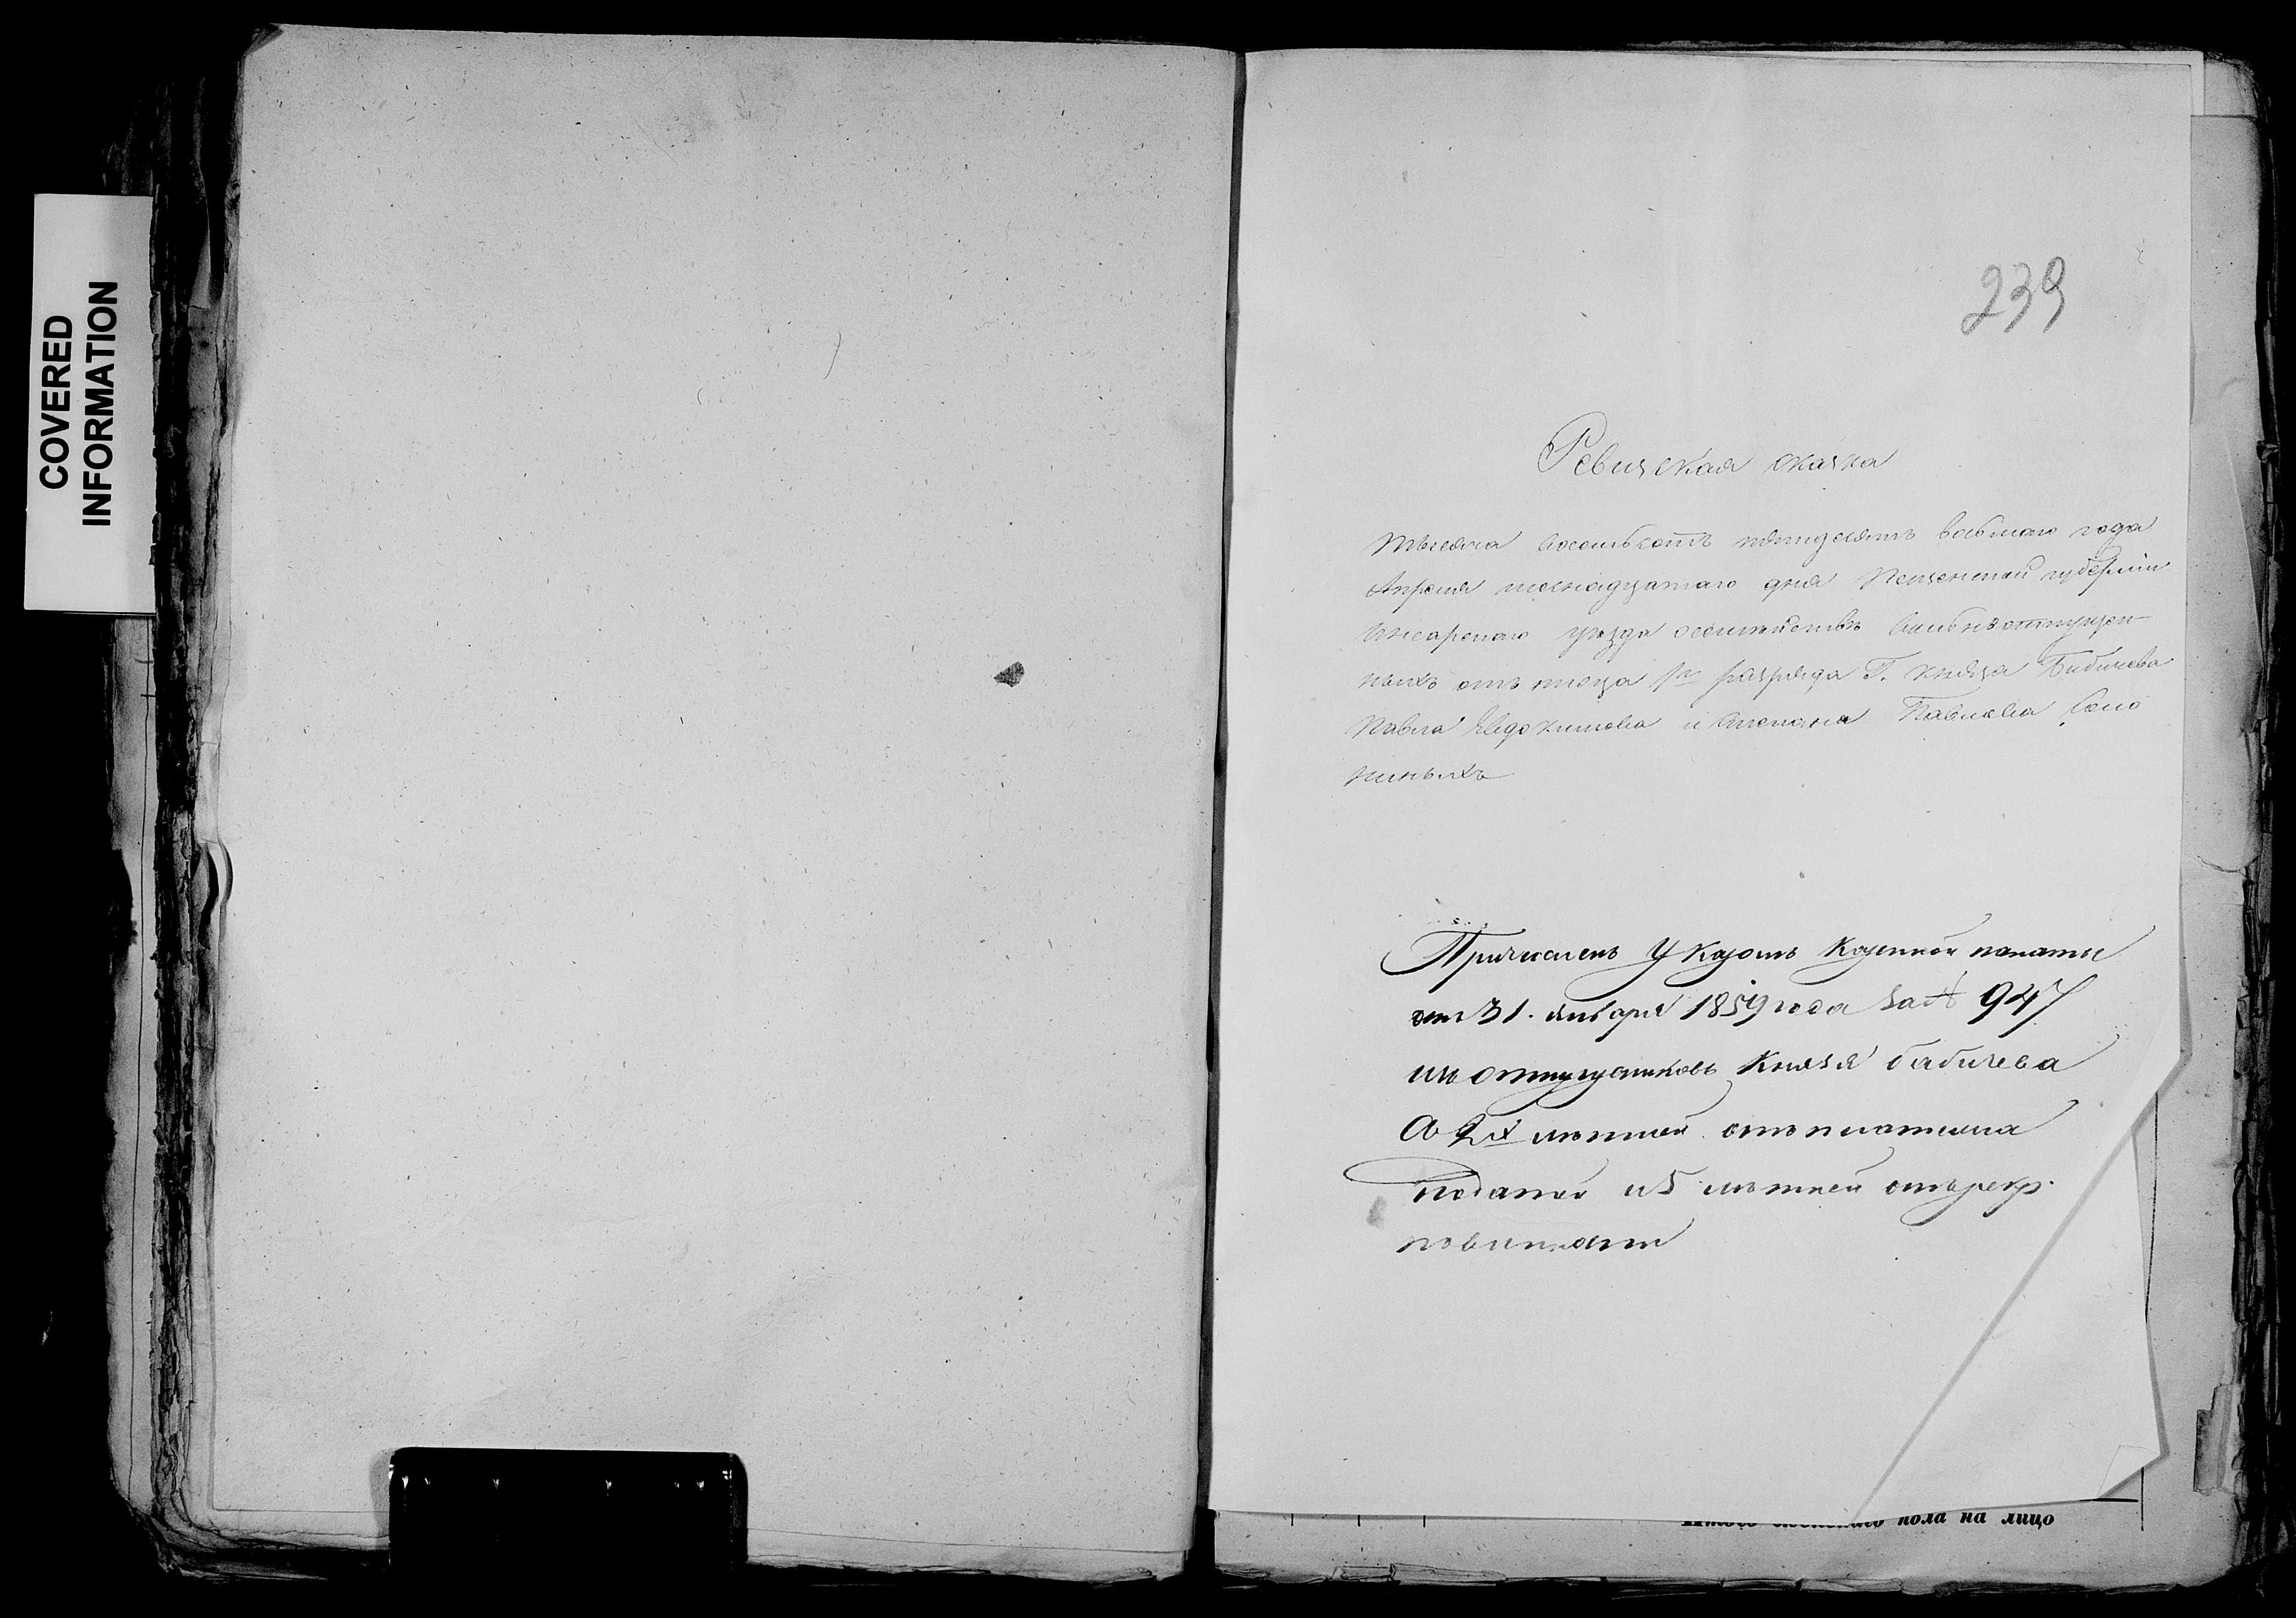 COVERED
INFORMATION
239
Ревизская сказка
тысяча восемьсотъ пятидесятъ восьмаго года
Апреля шеснадцатаго дня Пензенской губерніи
Инсарскаго уезда о семействѣ вольноотпущен-
ныхъ отъ князя Бибичева
Павла Евдокимова и Степана Павлова Соло
ниныхъ
Причислены Указомъ Казенной палаты
от 31. января 1859 года за № 947
из отпущениковъ Князя бабичева
Со 2х летней отъ платежа
податей и 5 летней отъ рекр.
повинности
пола на лицо